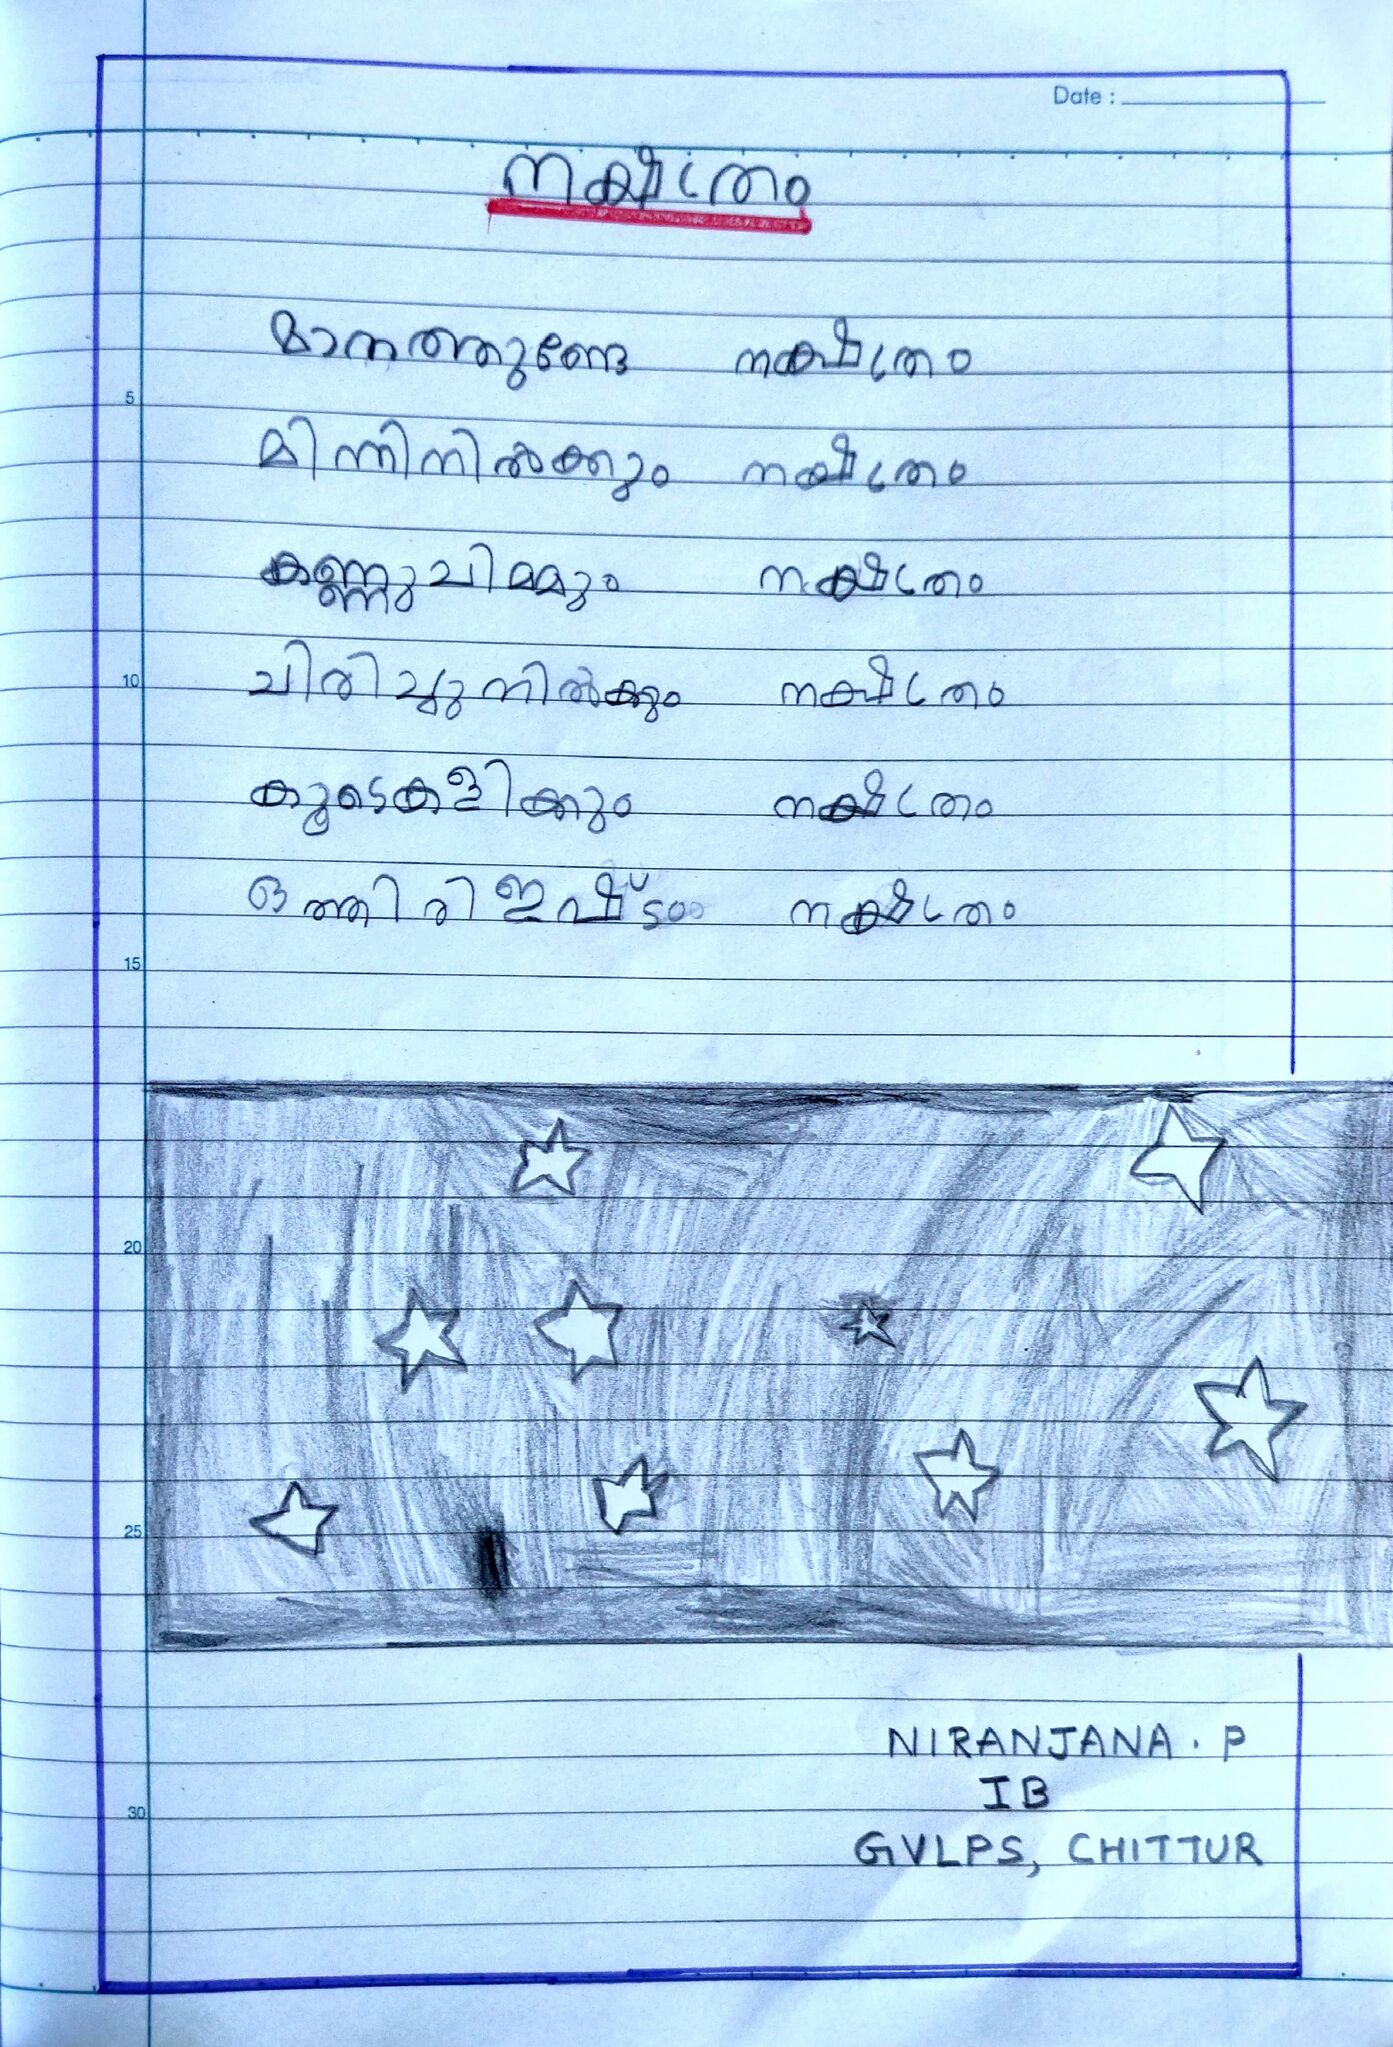 Date :
നക്ഷത്രം
മാനത്തുണ്ടേ നക്ഷത്രം
മിന്നിനിൽക്കും നക്ഷത്രം
കണ്ണുചിമ്മും നക്ഷത്രം
5
ചിരിച്ചുനിൽക്കും നക്ഷത്രം
10
കൂടെകളിക്കും നക്ഷത്രം
ഒത്തിരി ഇഷ്ടം നക്ഷത്രം
15
20
25
NIRANJANA . P
I B
30
GVLPS, CHITTUR